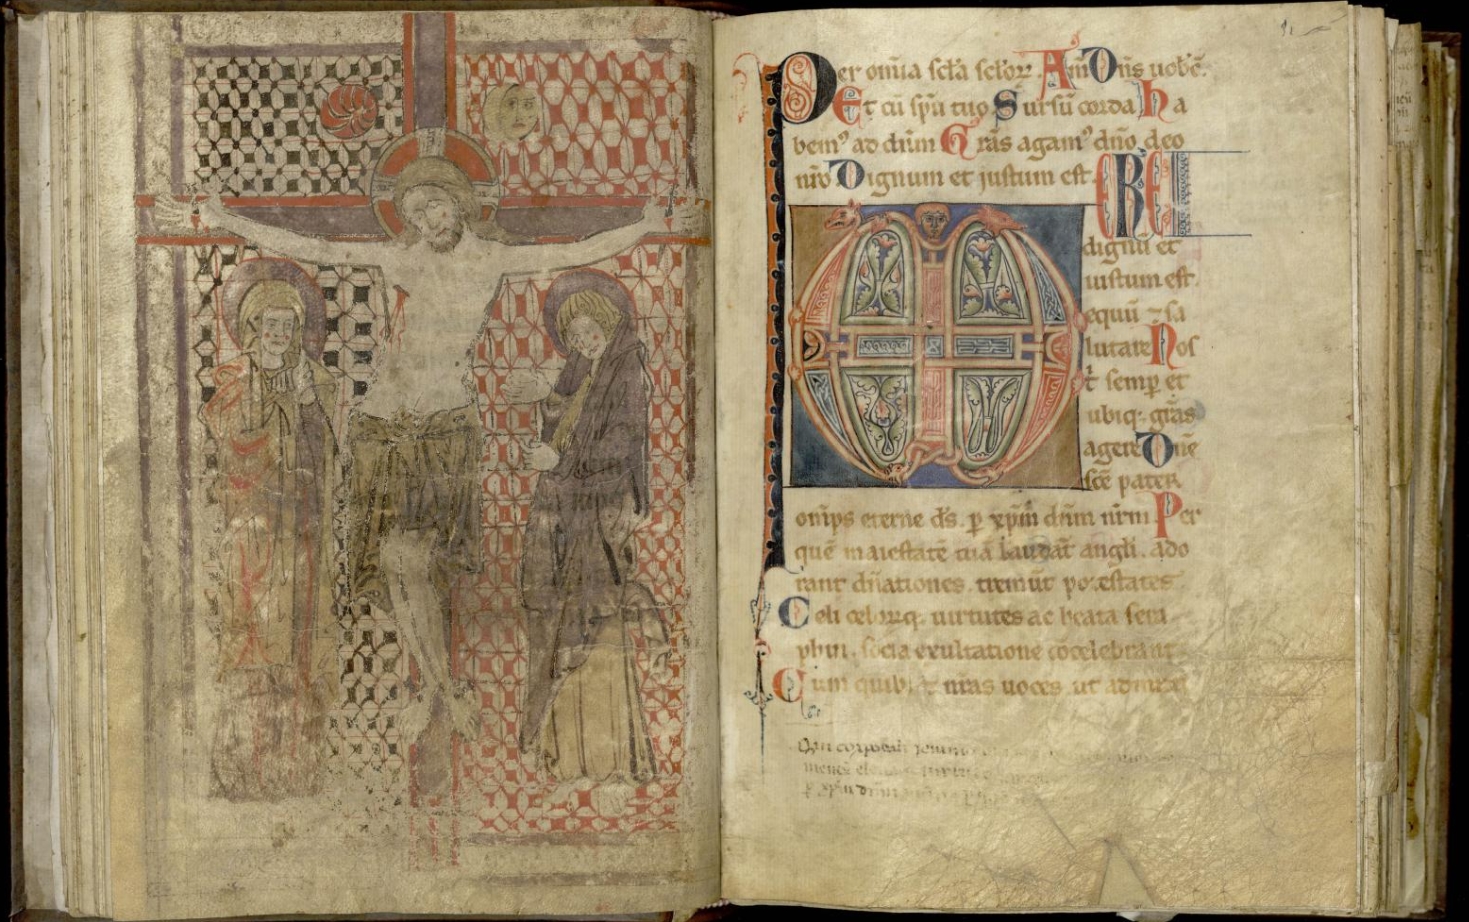 Per om̅ia scl̅a sclo̅ꝝ. Am̅ Dn̅s uobc̅.
Et cu̅ spu̅ tuo. Sursu̅ corda. Ha
bem᷒ ad dn̅m. Gr̅as agam᷒ dn̅o deo
nr̅o. Dignum et justum est.
VERE
dignu̅ et
iustum est.
equu̅ ⁊ sa
lutare. Nos
t̅ semp̲ et
ubiq. gr̅as
agere. Dn̅e
sc̅e pater
om̅ps eterne ds̅. p̲ xp̅m dn̅m nr̅m. Per
que̅ maiestate̅ tua̅ laudant angl̅i. ado
rant dn̅ationes. tremu̅t potestates.
Celi celorꝝq. uirtutes ac beata sera
phin. socia exultatione co̅celebrant.
Cum quib᷒ et nr̅as uoces. ut admitti
Qui corporali ieiunio
mente̅ eleuas
p̲ xp̅m dn̅m